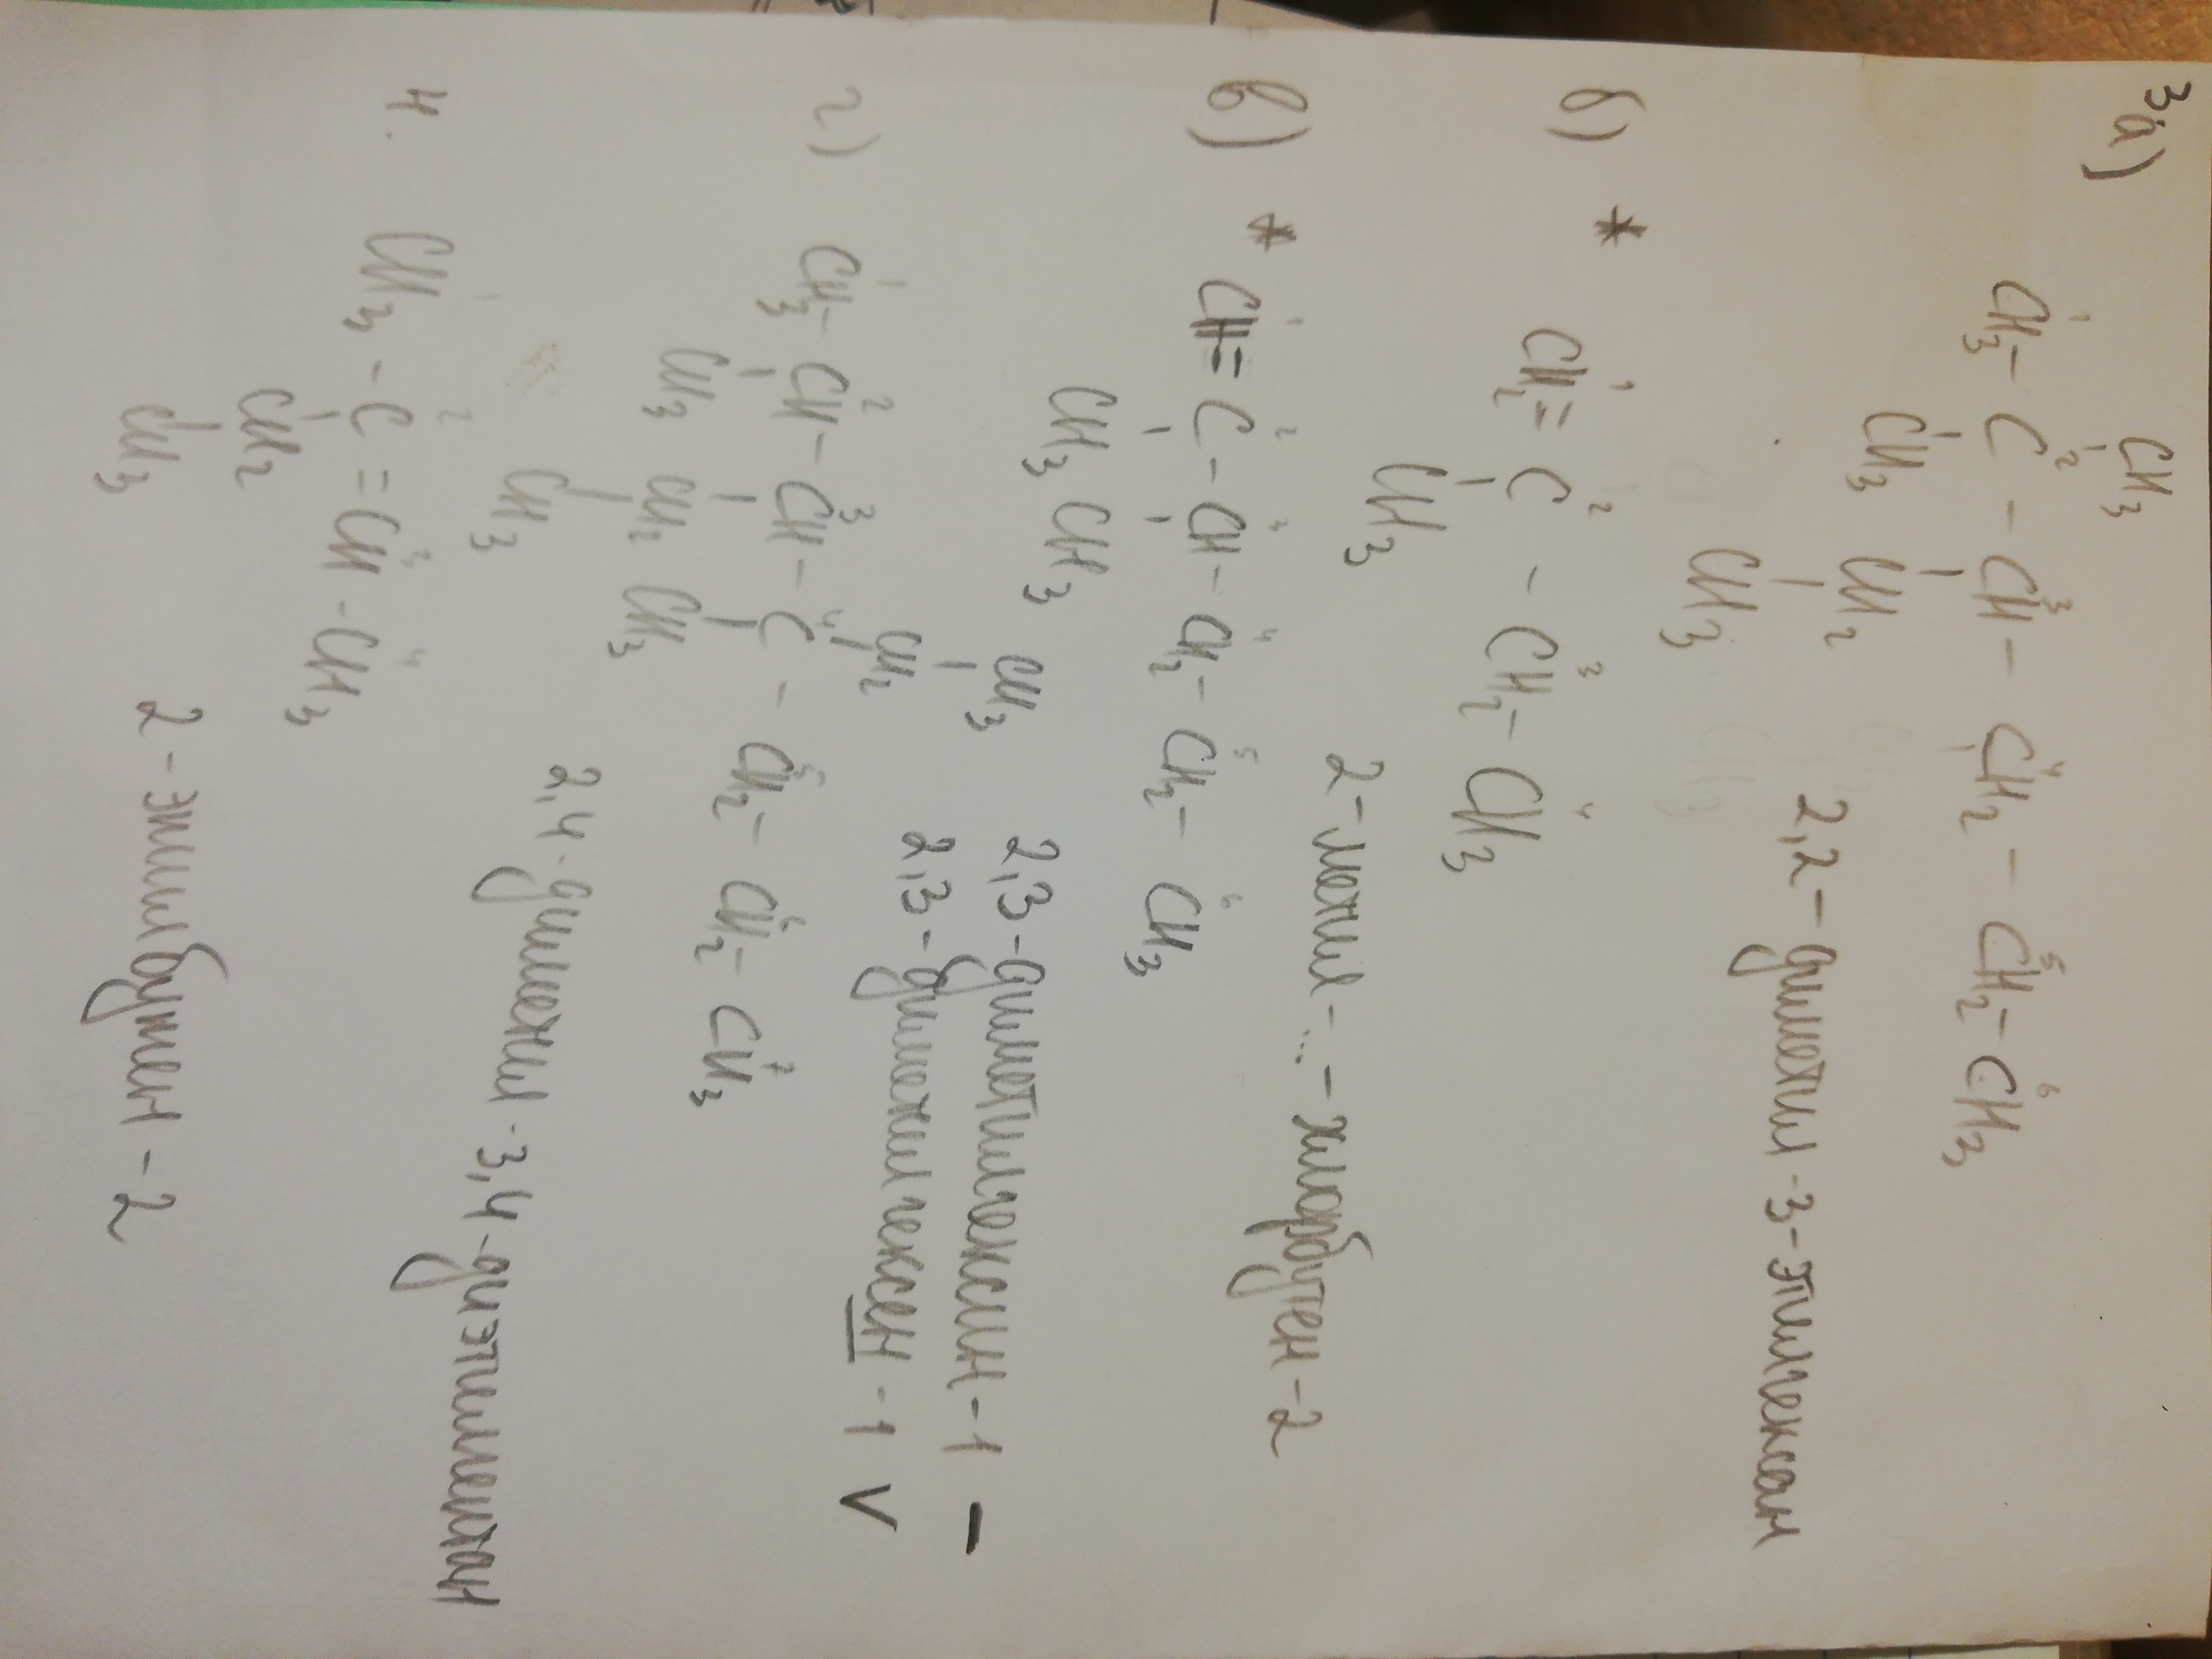 3а)
CH3
1 2 3 4 5 6
CH3 - C - CH - CH2 - CH2 - CH3
CH3 CH2
CH3
2,2-диметил-3-этилгексан
б) *
1 2 3 4
CH2 = C - CH2 - CH3
CH3
2-метил-...-хлорбутен-2
в) *
1 2 3 4 5 6
CH = C - CH - CH2 - CH2 - CH3
CH3 CH3
2,3-диметилгексин-1 –
2,3-диметилгексен-1 V
CH3
CH2
г)
1 2 3 4 5 6 7
CH3 - CH - CH - C - CH2 - CH2 - CH3
CH3 CH2 CH3
CH3
2,4-диметил-3,4-диэтилгептан
4.
1 2 3 4
CH3 - C = CH - CH3
CH2
CH3
2-этилбутен-2